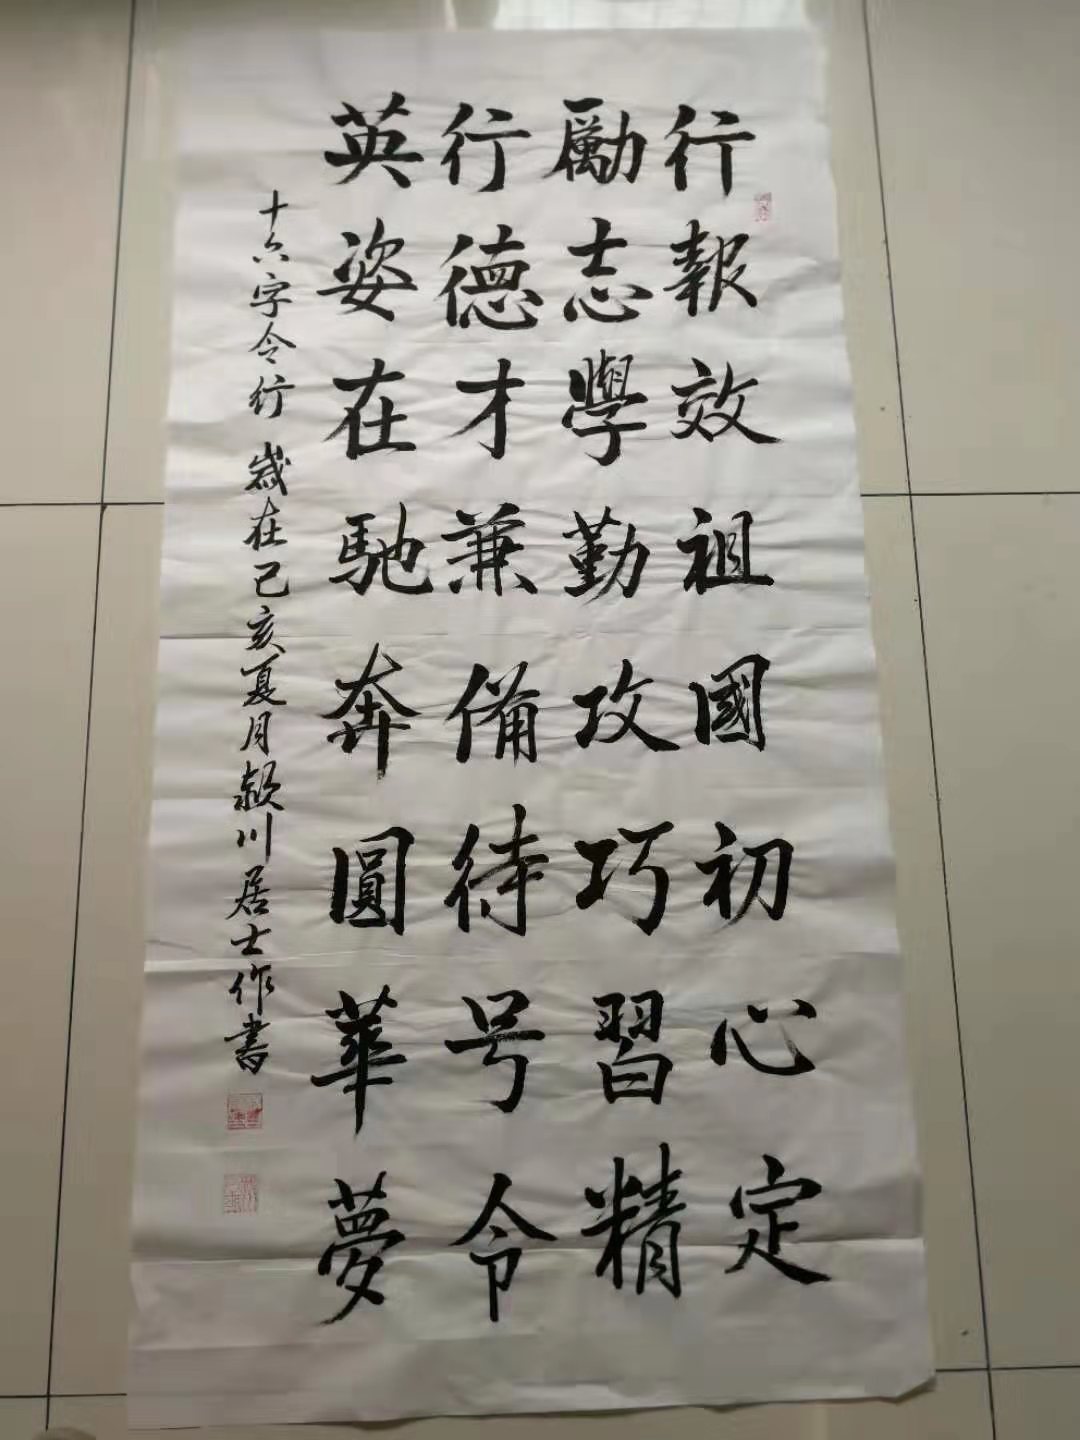 行報效祖國初心定
勵志學勤攻巧習精
行德才兼備待号令
英姿在馳奔圓華夢
十六字令行 歲在己亥夏月潁川居士作書